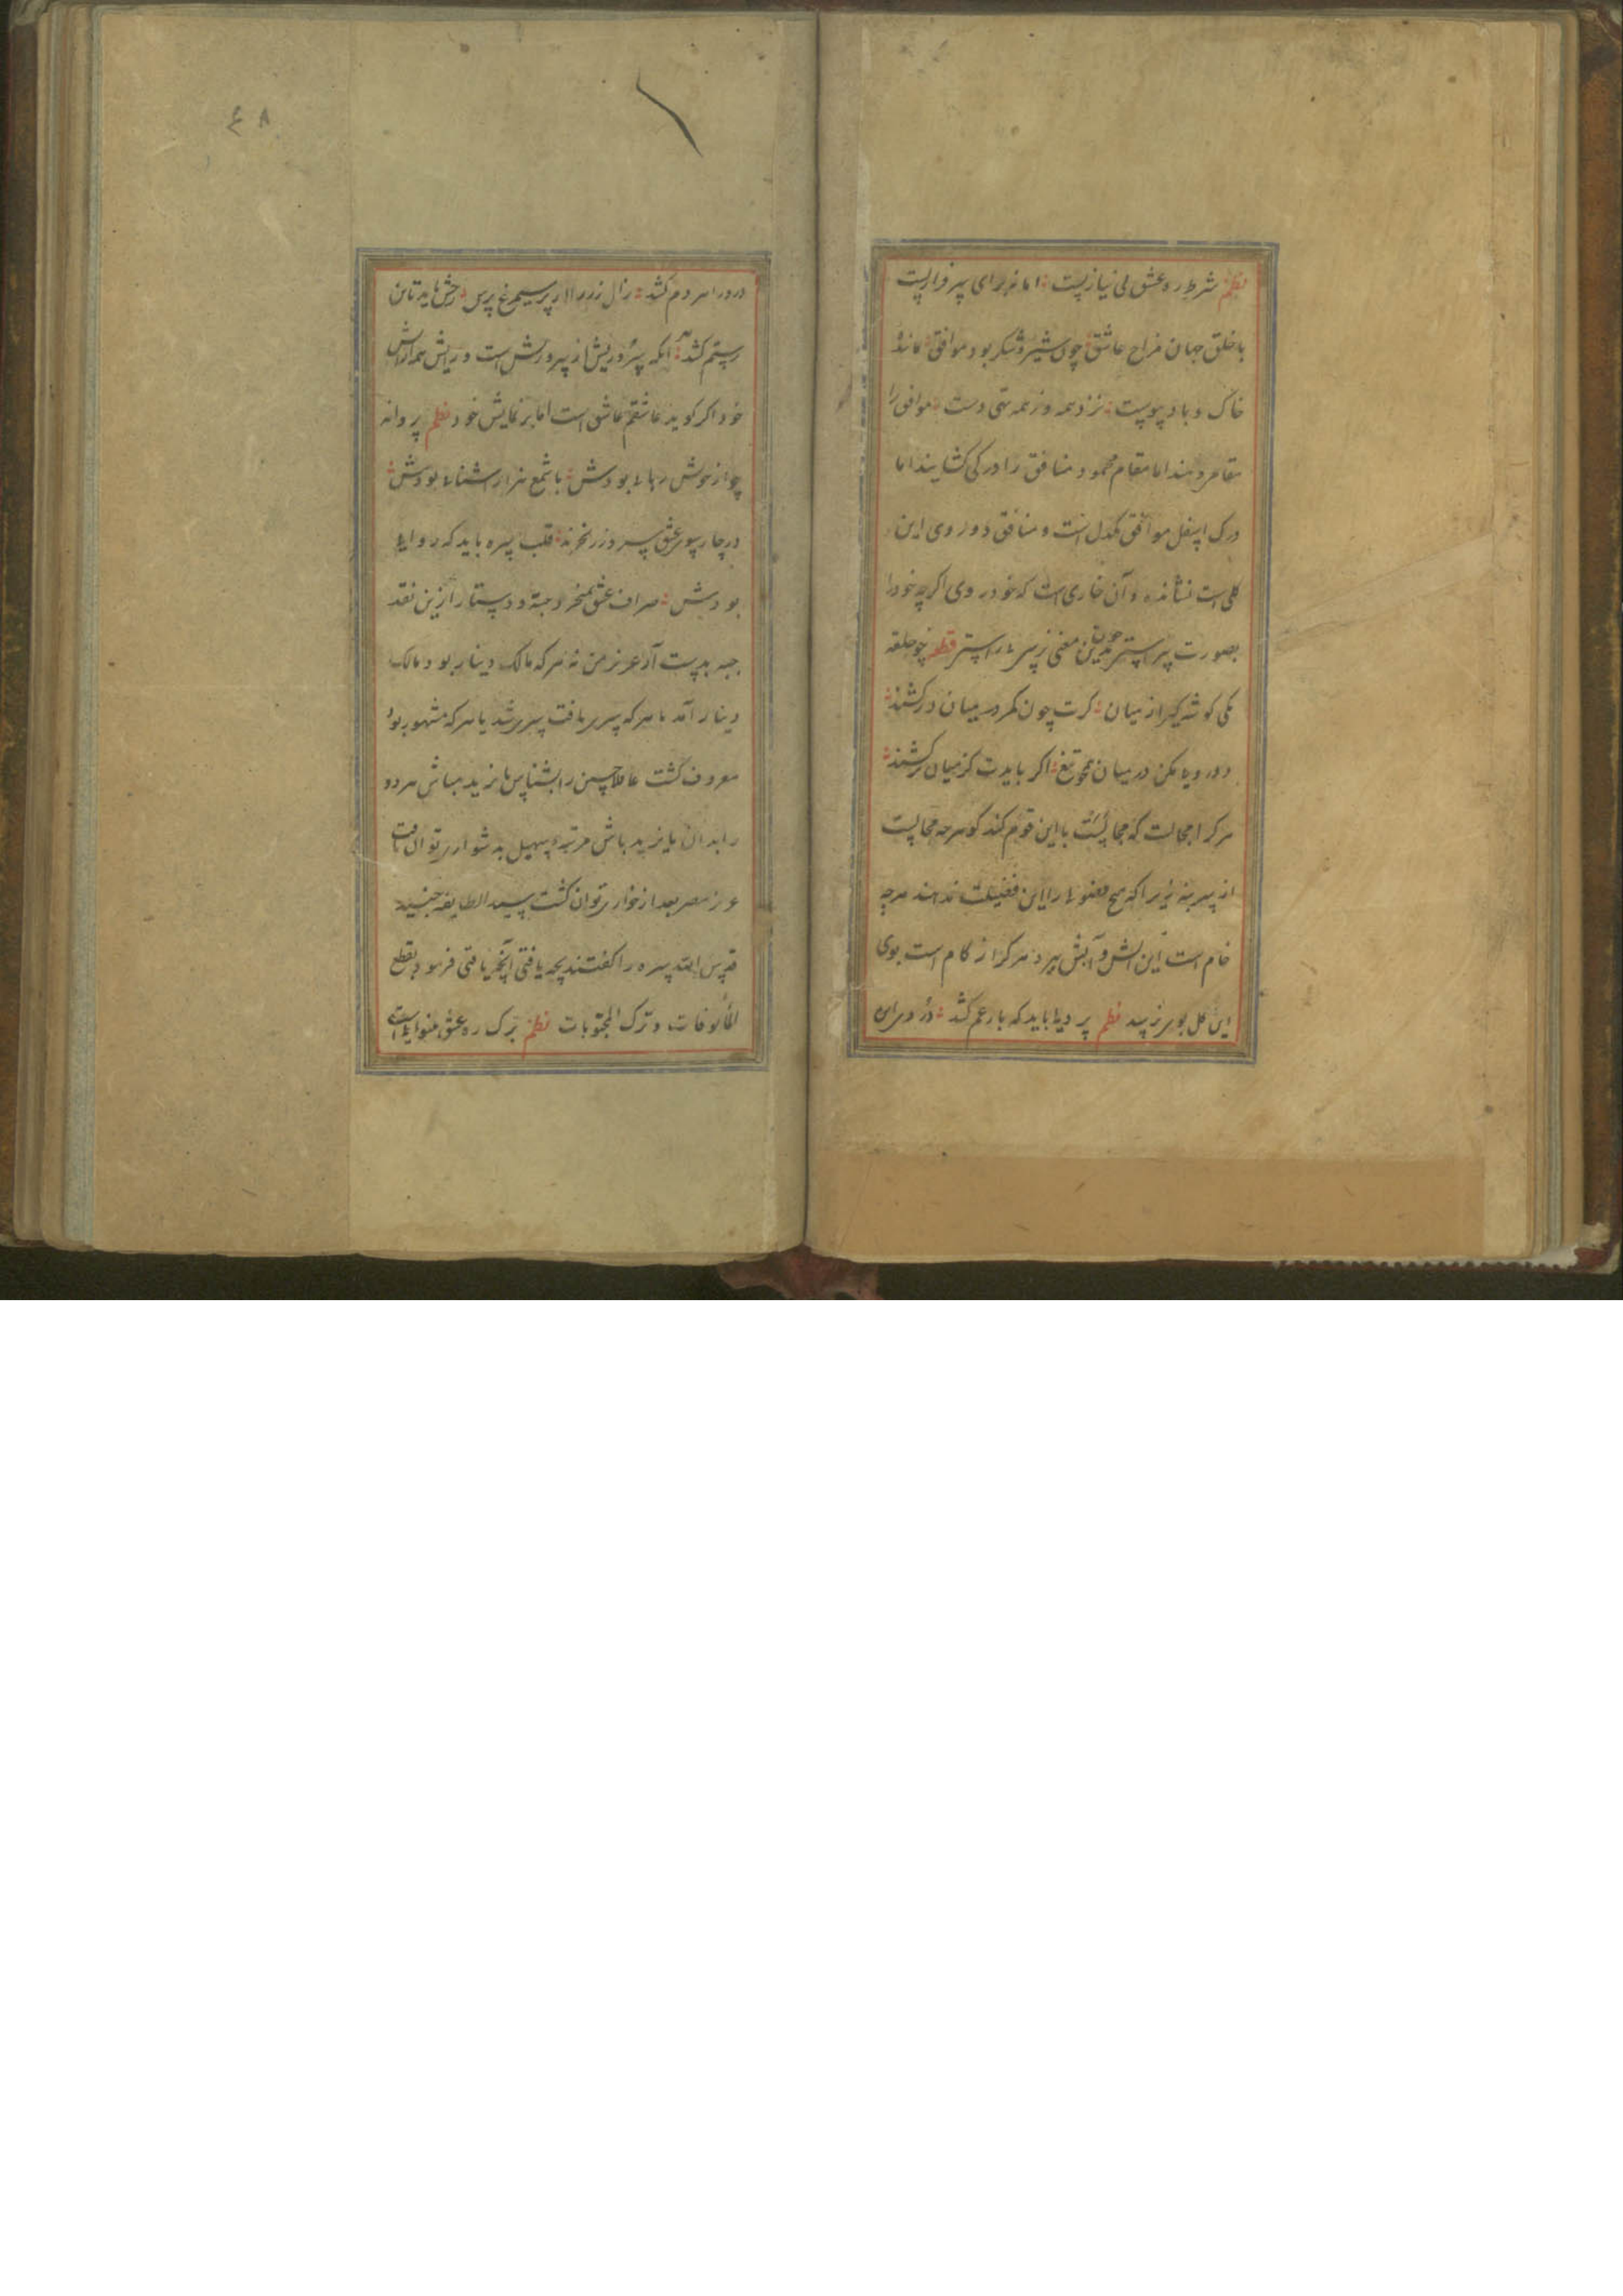 نظم شرط ره عشق بی نیازیست اما نه برای سرفرازیست
با خلق جهان مزاج عاشق چون شیر و شکر بود موافق مانند
خاک و باد پیوست نزد همه وز همه تهی دست موافق را
مقام دهند اما مقام محمود منافق را در کی کشایند اما
درک اسفل موافق یکدل است و منافق دو روی این
کلی است نشانده و آن خاری است که خود روی اکرچه خود را
بصورت پیراستن معنی ز سر راستی قطعه چو حلقه
یکی کوشه کیر از میان کرت چون کمر در میان درکشند
دورویی مکن در میان همچو تیغ اکر بایدت کز میان برکشند
هر کرا مجالست که مجالست با این قوم کند کو هرچه مجالیست
از سر بنه زیرا که هیچ فضولی را این فضیلت ندهند هرچه
خام است این آتش و آبش ببرد هر کرا زکام است بوی
این کل بویی نرسید نظم پر دلی باید که بار غم کشد
در دم کشد زال زر را از پر سیمرغ پرس رخش باید تا تن
رستم کشد آنکه پرورش از پرورش است و رایش همه آرایش
خود اکر کوید عاشقم عاشق است اما بر نمایش خود نظم پروانه
چو از خوش رهایی بودش با شمع هزار آشنایی بودش
در چارسوی عشق سره زر نخرند قلب سره باید که روایی
بودش صراف عشق نمیخرد جبه و دستار ازین نقد
حبه بدست آر عزیز من نه هر که مالک دینار بود مالک
دینار آمد یا هر که سری یافت سری شد یا هر که مشهور بود
معروف کشت عاملا حسین را بشناس بایزید مباش هر دو
را بدان بایزید باش مرتبه سهیل بدشواری توان یافت
عزیز مصر بعد از خواری توان کشت سید الطایفه جنید
قدس الله سره را کفتند بچه یافتی آنچه یافتی فرمود بقطع
المألوفات و ترک المحبوبات نظم برک ره عشق بینوایی است
٤٨